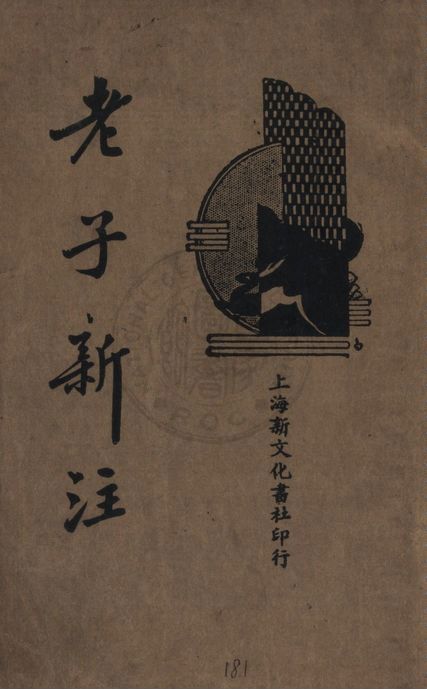 老子新注
上海新文化書社印行
181